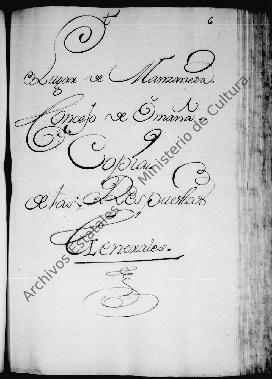 6
Lugar de Manzaneda
Concejo de Omaña
Copia
de las Respuestas
Generales.
Archivos Estatales
Ministerio de Cultura